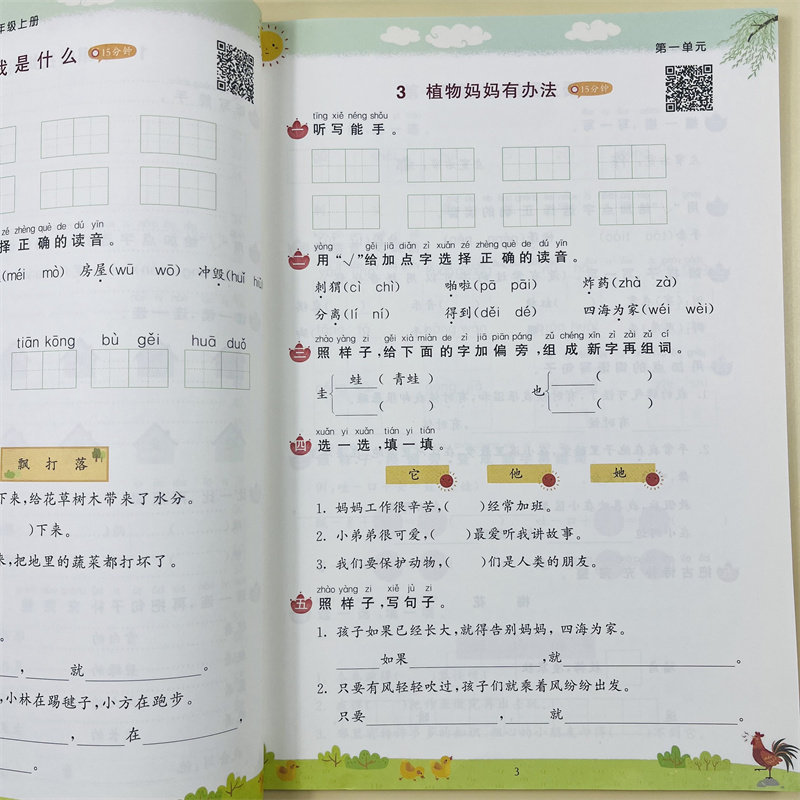 年级上册
我是什么 15分钟
zé zhèng què de dú yīn
择正确的读音。
(méi mò) 房屋(wū wō) 冲毁(huǐ huì)
tiān kōng bù gěi huā duǒ
飘 打 落
下来,给花草树木带来了水分。
)下来。
来,把地里的蔬菜都打坏了。
, 就 。
,小林在踢毽子,小方在跑步。
, 在 ,
。
第一单元
3 植物妈妈有办法 15分钟
tīng xiě néng shǒu
一 听写能手。
yòng gěi jiā diǎn zì xuǎn zé zhèng què de dú yīn
二 用“√”给加点字选择正确的读音。
刺猬(cì chì) 啪啦(pā pāi) 炸药(zhà zà)
分离(lí ní) 得到(děi dé) 四海为家(wéi wèi)
zhào yàng zi gěi xià miàn de zì jiā piān páng zǔ chéng xīn zì zài zǔ cí
三 照样子,给下面的字加偏旁,组成新字再组词。
圭 蛙(青蛙) ( ) 也 ( ) ( )
xuǎn yi xuǎn tián yi tián
四 选一选,填一填。
它 他 她
1. 妈妈工作很辛苦,( )经常加班。
2. 小弟弟很可爱,( )最爱听我讲故事。
3. 我们要保护动物,( )们是人类的朋友。
zhào yàng zi xiě jù zi
五 照样子,写句子。
1. 孩子如果已经长大,就得告别妈妈,四海为家。
如果 ,就 。
2. 只要有风轻轻吹过,孩子们就乘着风纷纷出发。
只要 , 就 。
3